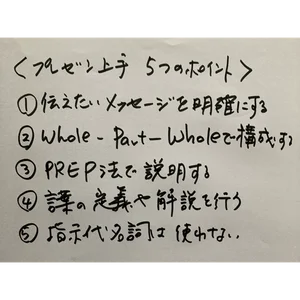 <プレゼン上手 5つのポイント>
①伝えたいメッセージを明確にする
②Whole-Part-Wholeで構成する
③PREP法で説明する
④言葉の定義や解説を行う
⑤指示代名詞は使わない